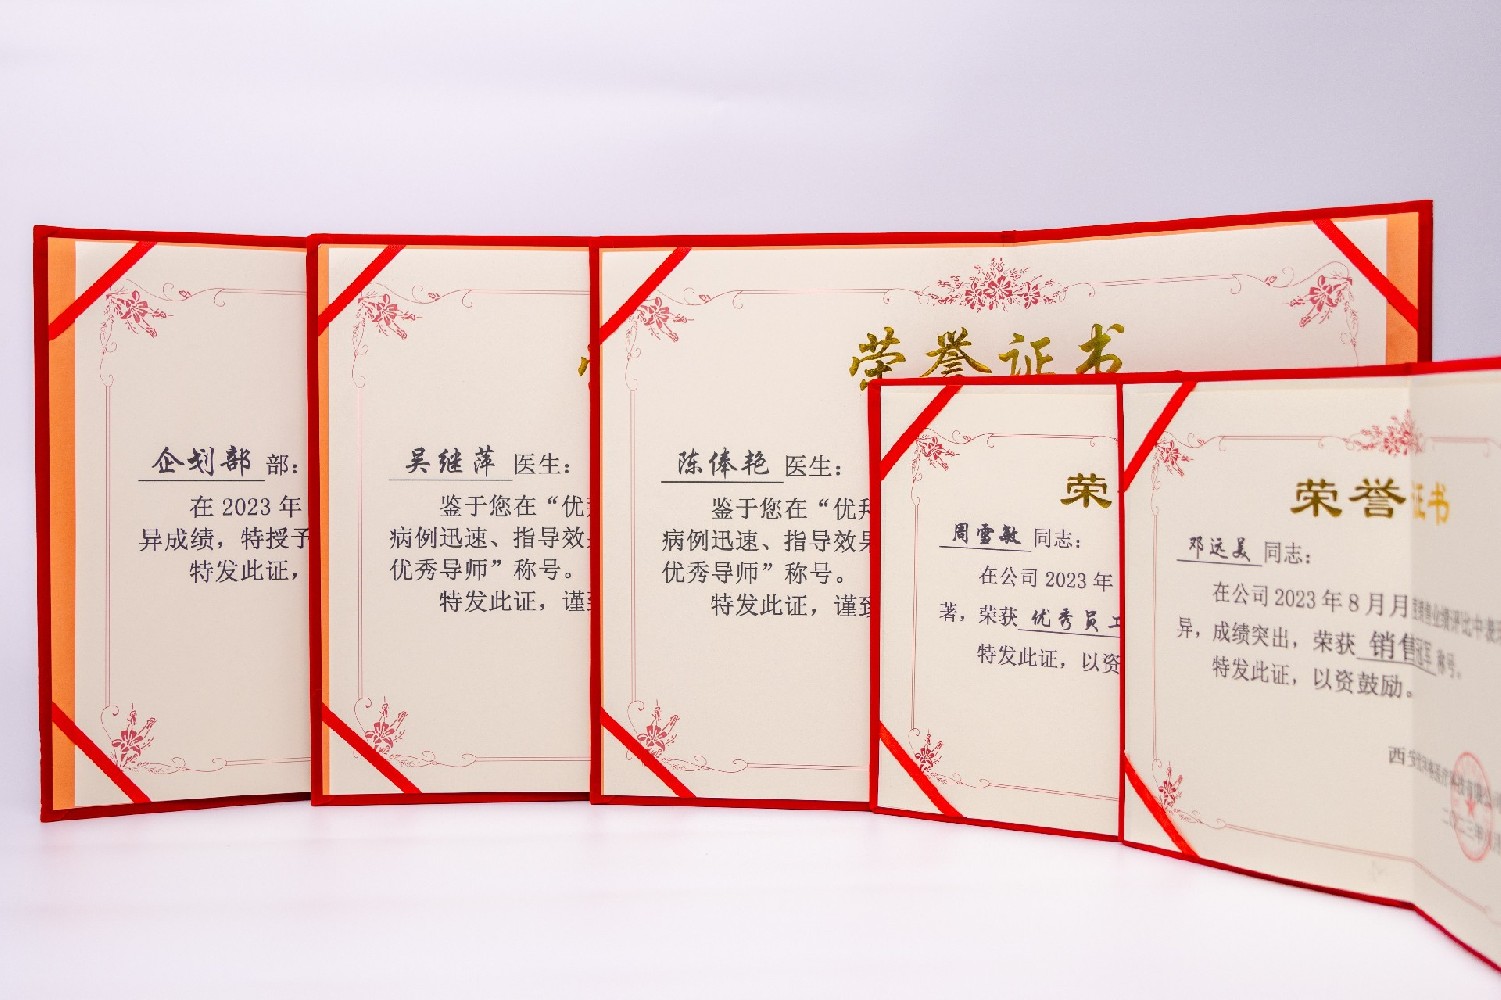 企划部 部：
在 2023 年
异成绩，特授予
特发此证，
吴继萍 医生：
鉴于您在“优
病例迅速、指导效
优秀导师”称号。
特发此证，谨
荣誉证书
陈俸艳 医生：
鉴于您在“优
病例迅速、指导效果
优秀导师”称号。
特发此证，谨致
荣
周雪敏 同志：
在公司 2023 年
著，荣获 优秀员工
特发此证，以资
荣誉证书
邓远美 同志：
在公司 2023 年 8 月月
异，成绩突出，荣获 销售冠军 称号。
特发此证，以资鼓励。
西安